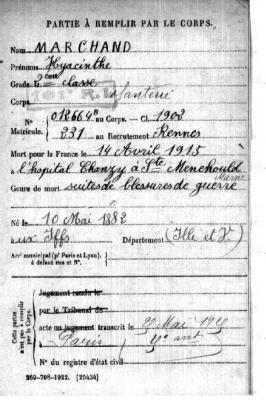 PARTIE À REMPLIR PAR LE CORPS.
Nom MARCHAND
Prénoms Hyacinthe
Grade 2ème classe
Corps Infanterie
N° 012664B au Corps. — Cl. 1902
Matricule. 231 au Recrutement Rennes
Mort pour la France le 14 Avril 1915
à l'hôpital Chanzy à Ste Menehould
Marne
Genre de mort suites de blessures de guerre
Né le 10 Mai 1882
aux Iffs Département (Ille et V.)
Arr¹ municipal (pr Paris et Lyon),
à défaut rue et N°.
Cette partie
n'est pas à remplir
par le Corps.
Jugement rendu le
par le Tribunal de
acte ou jugement transcrit le Mai
à Paris
N° du registre d'état civil
269-708-1922. [20434]